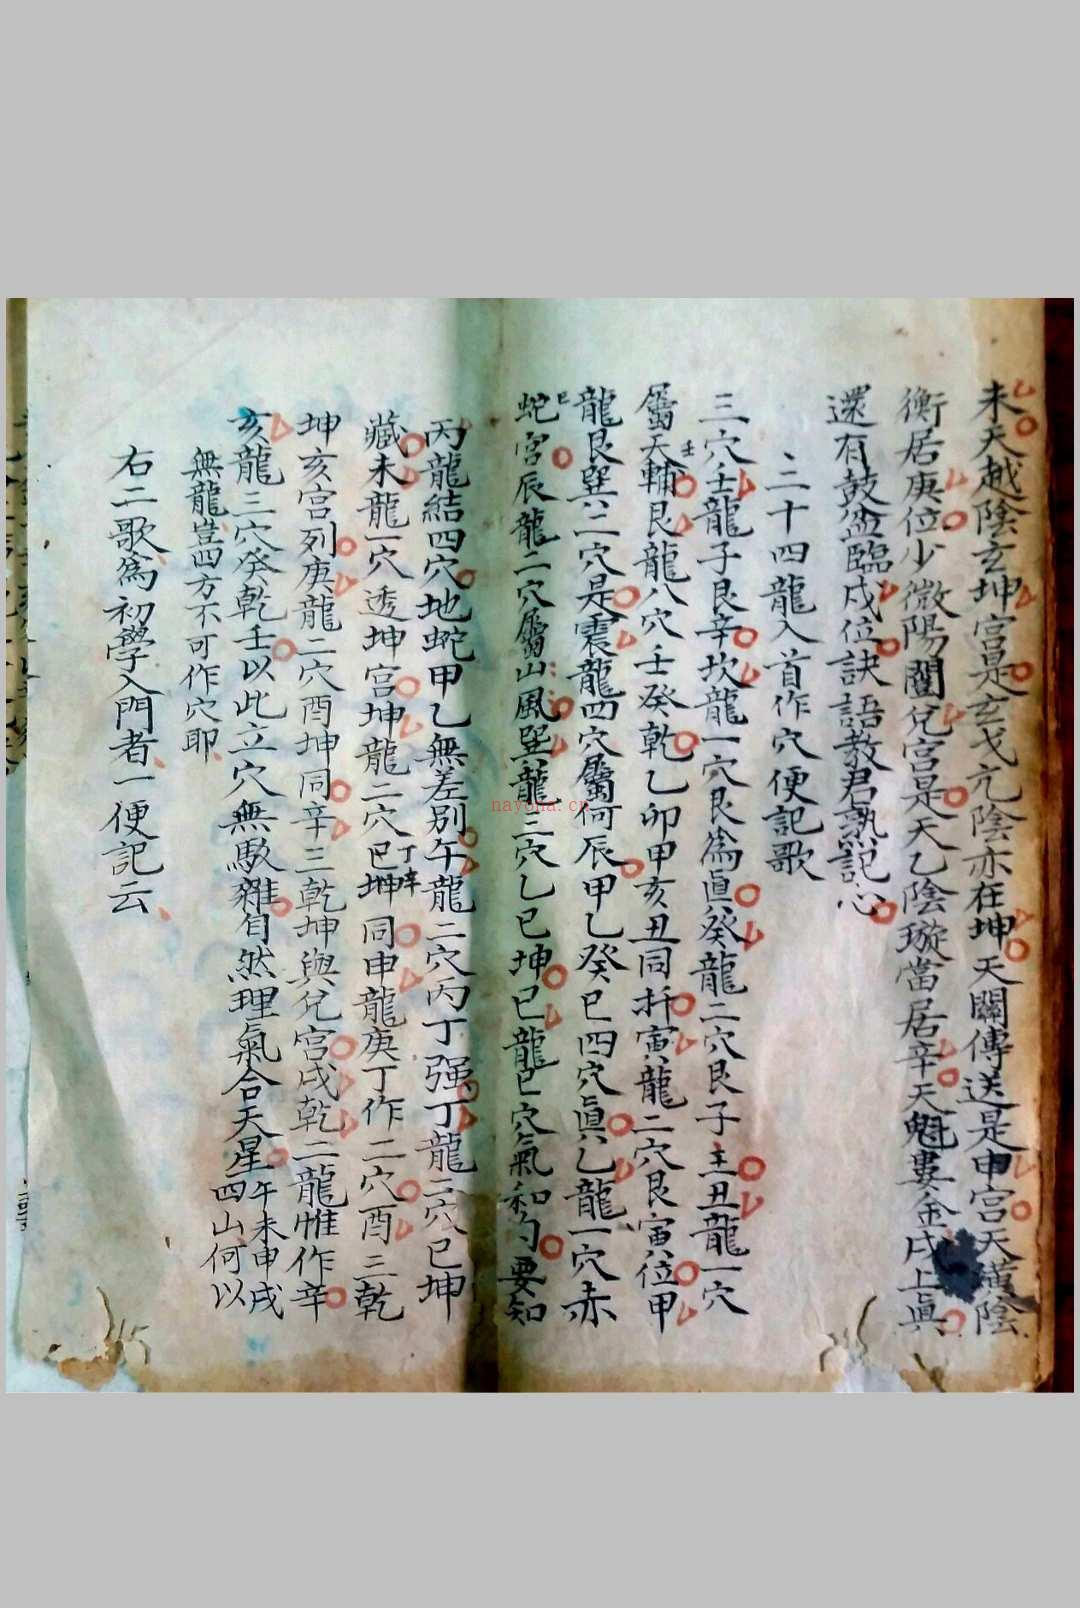 未天越陰玄坤宮是玄戈亢陰亦在坤天關傳送是申宮天潢陰
衡居庚位少微陽闔兌宮是天乙陰璇當居辛天魁婁金戌上眞
還有鼓盆臨戌位訣語教君熟記心
二十四龍入首作穴便記歌
三穴壬龍子艮辛坎龍一穴艮爲眞癸龍二穴艮子主丑龍一穴
屬天輔艮龍八穴壬癸乾乙卯甲亥丑同折寅龍二穴艮寅位甲
壬
龍艮巽二穴是震龍四穴屬何辰甲乙癸巳四穴眞乙龍一穴赤
蛇宮辰龍二穴屬山風巽龍三穴乙巳坤巳龍巳穴氣和勻要知
巳
丙龍結四穴地蛇甲乙無差別午龍二穴丙丁强丁龍二穴巳坤
藏未龍一穴透坤宮坤龍二穴巳坤同申龍庚丁作二穴酉三乾
丁辛
坤亥宮列庚龍二穴酉坤同辛三乾坤與兌宮戌乾二龍惟作辛
亥龍三穴癸乾壬以此立穴無駁雜自然理氣合天星午未申戌
四山何以
無龍豈四方不可作穴耶
右二歌爲初學入門者一便記云
nayona.cn